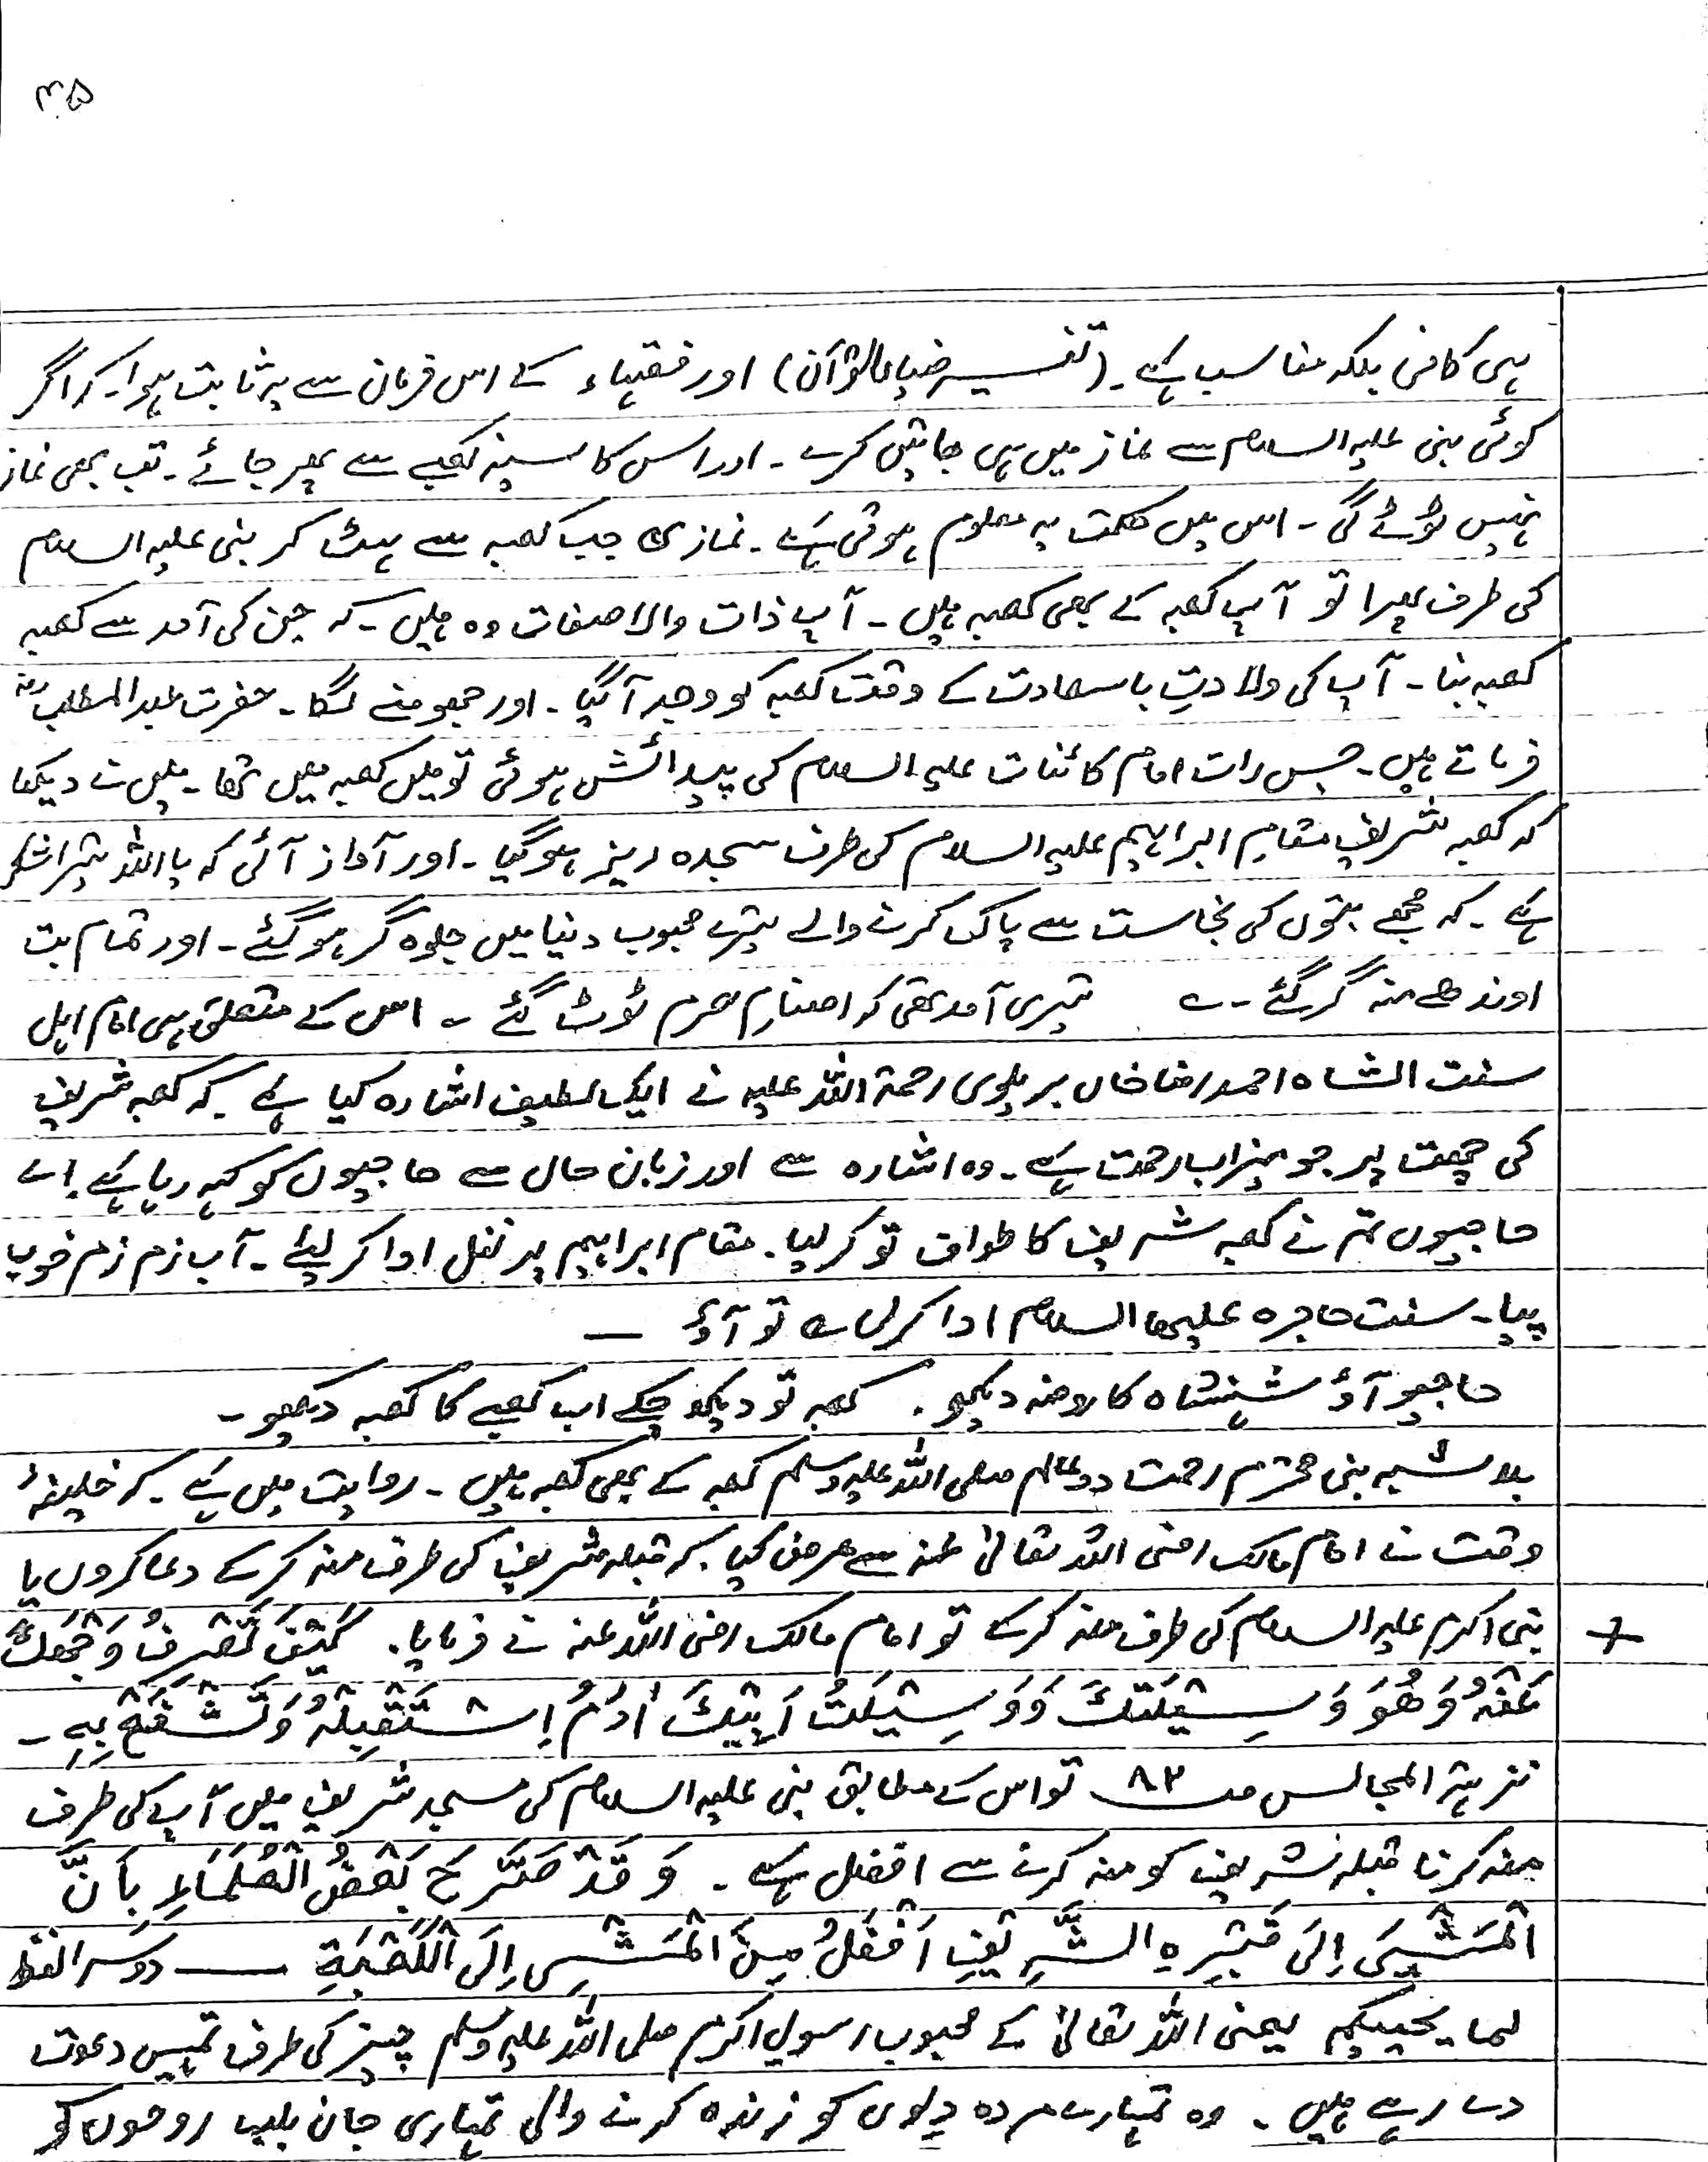 ۳۵
ہی کافی بلکہ مناسب ہے۔ (تفسیر ضیاءالقرآن) اور فقہاء کے اس فرمان سے یہ ثابت ہوا۔ کہ اگر
کوئی نبی علیہ السلام سے نماز میں ہی باتیں کرے۔ اور اس کا سینہ کعبے سے پھر جائے۔ تب بھی نماز
نہیں ٹوٹے گی۔ اس میں حکمت یہ معلوم ہوتی ہے۔ نمازی جب کعبہ سے ہٹ کر نبی علیہ السلام
کی طرف پھرا تو آپ کعبہ کے بھی کعبہ ہیں۔ آپ ذات والا صفات وہ ہیں۔ کہ جن کی آمد سے کعبہ
کعبہ بنا۔ آپ کی ولادتِ باسعادت کے وقت کعبہ کو وجد آ گیا۔ اور جھومنے لگا۔ حضرت عبدالمطلب رض
فرماتے ہیں۔ جس رات امام کائنات علیہ السلام کی پیدائش ہوئی تو میں کعبہ میں تھا۔ میں نے دیکھا
کہ کعبہ شریف مقامِ ابراہیم علیہ السلام کی طرف سجدہ ریز ہو گیا۔ اور آواز آئی کہ یا اللہ تیرا شکر
ہے۔ کہ مجھے بتوں کی نجاست سے پاک کرنے والے تیرے محبوب دنیا میں جلوہ گر ہو گئے۔ اور تمام بت
اوندھے منہ گر گئے۔ ے تیری آمد تھی کہ اصنامِ حرم ٹوٹ گئے ۔ اس کے متعلق ہی امام اہل
سنت الشاہ احمد رضا خاں بریلوی رحمۃ اللہ علیہ نے ایک لطیف اشارہ کیا ہے۔ کہ کعبہ شریف
کی چھت پر جو میزاب رحمت ہے۔ وہ اشارہ سے اور زبان حال سے حاجیوں کو کہہ رہا ہے۔ اے
حاجیوں تم نے کعبہ شریف کا طواف تو کر لیا۔ مقام ابراہیم پر نفل ادا کر لیئے۔ آب زم زم خوب
پیا۔ سنت حاجرہ علیھا السلام ادا کر لی ے تو آؤ —
حاجیو آؤ شہنشاہ کا روضہ دیکھو۔ کعبہ تو دیکھ چکے اب کعبے کا کعبہ دیکھو۔
بلا شبہ نبی محترم رحمت دوعالم صلی اللہ علیہ وسلم کعبہ کے بھی کعبہ ہیں۔ روایت میں ہے۔ کہ خلیفۂ
وقت نے امام مالک رضی اللہ تعالیٰ عنہ سے عرض کیا۔ کہ قبلہ شریف کی طرف منہ کر کے دعا کروں یا
نبی اکرم علیہ السلام کی طرف منہ کر کے تو امام مالک رضی اللہ عنہ نے فرمایا۔ کَیْفَ تَصْرِفُ وَجْھَکَ
عَنْہُ وَھُوَ وَسِیْلَتُکَ وَوَسِیْلَتُ اَبِیْکَ اٰدَمُ اِسْتَقْبِلْہُ وَتَشَفَّعْ بِہٖ۔
نزہتہ المجالس ص ۸۲ تو اس کے مطابق نبی علیہ السلام کی مسجد شریف میں آپ کی طرف
منہ کرنا قبلہ شریف کو منہ کرنے سے افضل ہے۔ وَقَدْ صَرَّحَ بَعْضُ الْعُلَمَاءِ بِاَنَّ
الْمَشْیَ اِلَی قَبْرِہِ الشَّرِیْفِ اَفْضَلُ مِنَ الْمَشْیِ اِلَی الْکَعْبَةِ — دوسرا لفظ
لما یحییکم یعنی اللہ تعالیٰ کے محبوب رسولِ اکرم صلی اللہ علیہ وسلم چیز کی طرف تمہیں دعوت
دے رہے ہیں۔ وہ تمہارے مردہ دِلوں کو زندہ کرنے والی تمہاری جان بلب روحوں کو